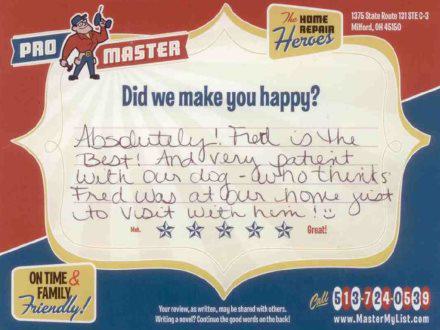 PRO MASTER
The HOME REPAIR Heroes
1375 State Route 131 STE C-3
Milford, OH 45150
Did we make you happy?
Absolutely! Fred is the
Best! And very patient
with our dog - who thinks
Fred was at our home just
to visit with him!
Meh. Great!
ON TIME &
FAMILY
Friendly!
Your review, as written, may be shared with others.
Writing a novel? Continue the good words on the back!
Call 513-724-0539
www.MasterMyList.com